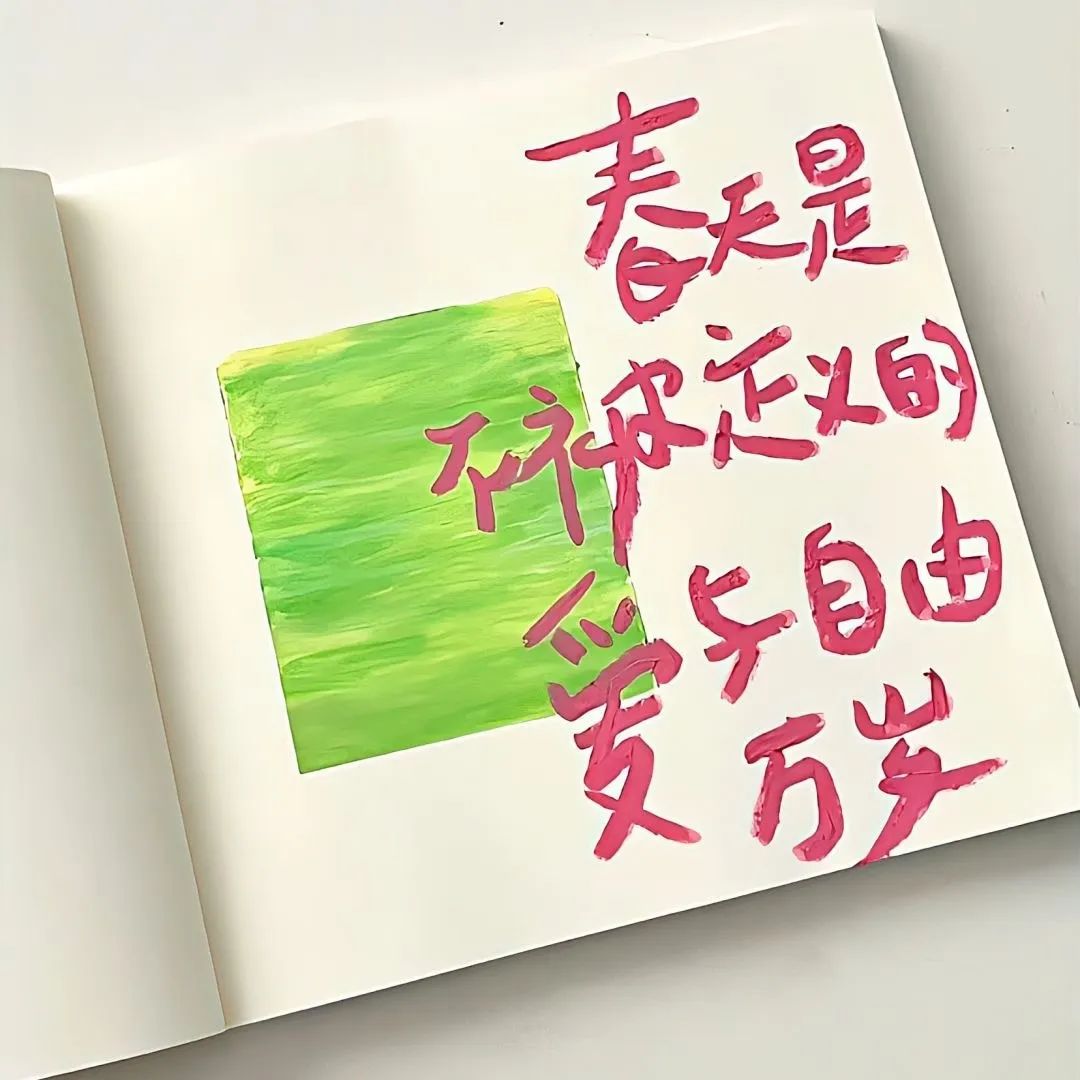 春天是
不被定义的
爱与自由
万岁